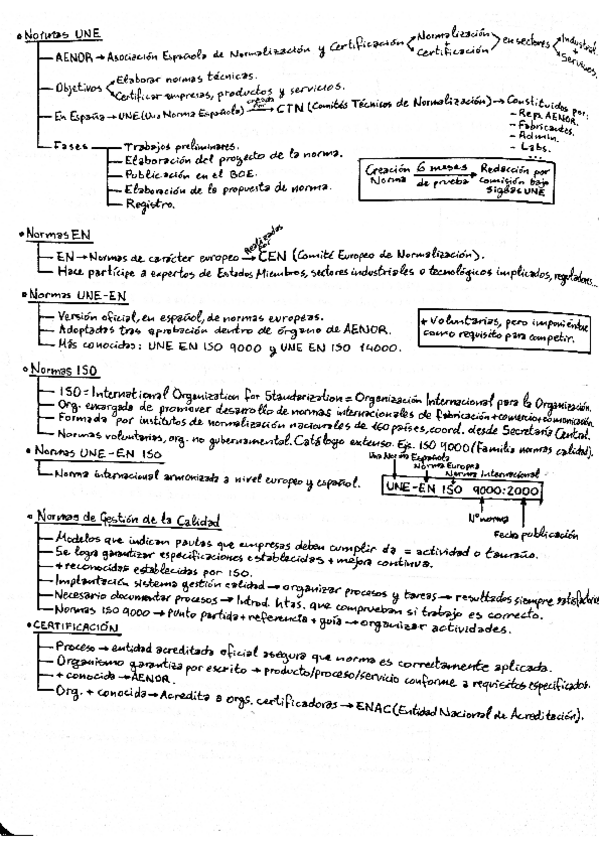 • Normas UNE
AENOR → Asociación Española de Normalización y Certificación < Normalización + Certificación > en sectores < Industrial. Servicios.
Objetivos < Elaborar normas técnicas. Certificar empresas, productos y servicios.
En España → UNE (Una Norma Española) → CTN (Comités Técnicos de Normalización) → Constituidos por:
- Rep. AENOR.
- Fabricantes.
- Admin.
- Labs.
...
Fases
Trabajos preliminares.
Elaboración del proyecto de la norma.
Publicación en el BOE.
Elaboración de la propuesta de norma.
Registro.
Creación Norma → 6 meses de prueba → Redacción por comisión bajo siglas UNE
• Normas EN
EN → Normas de carácter europeo → Realizadas por CEN (Comité Europeo de Normalización).
Hace partícipe a expertos de Estados Miembros, sectores industriales o tecnológicos implicados, reguladores...
• Normas UNE-EN
Versión oficial, en español, de normas europeas.
Adoptadas tras aprobación dentro de órgano de AENOR.
Más conocidas: UNE EN ISO 9000 y UNE EN ISO 14000.
+ Voluntarias, pero imponiéndose
como requisito para competir.
• Normas ISO
ISO = International Organization for Standarization = Organización Internacional para la Organización.
Org. encargada de promover desarrollo de normas internacionales de fabricación + comercio + comunicación.
Formada por institutos de normalización nacionales de 160 países, coord. desde Secretaría Central.
Normas voluntarias, org. no gubernamental. Catálogo extenso. Ejs. ISO 9000 (Familia normas calidad).
• Normas UNE-EN ISO
Norma internacional armonizada a nivel europeo y español.
Una Norma Española
Norma Europea
Norma Internacional
UNE-EN ISO 9000:2000
Nº norma
Fecha publicación
• Normas de Gestión de la Calidad
Modelos que indican pautas que empresas deben cumplir da = actividad o tamaño.
Se logra garantizar especificaciones establecidas + mejora continua.
+ reconocidas establecidas por ISO.
Implantación sistema gestión calidad → organizar procesos y tareas → resultados siempre satisfactorios
Necesario documentar procesos → Introd. htas. que comprueban si trabajo es correcto.
Normas ISO 9000 → Punto partida + referencia + guía → organizar actividades.
• CERTIFICACIÓN
Proceso → entidad acreditada oficial asegura que norma es correctamente aplicada.
Organismo garantiza por escrito → producto/proceso/servicio conforme a requisitos especificados.
+ conocida → AENOR.
Org. + conocida → Acredita a orgs. certificadoras → ENAC (Entidad Nacional de Acreditación).